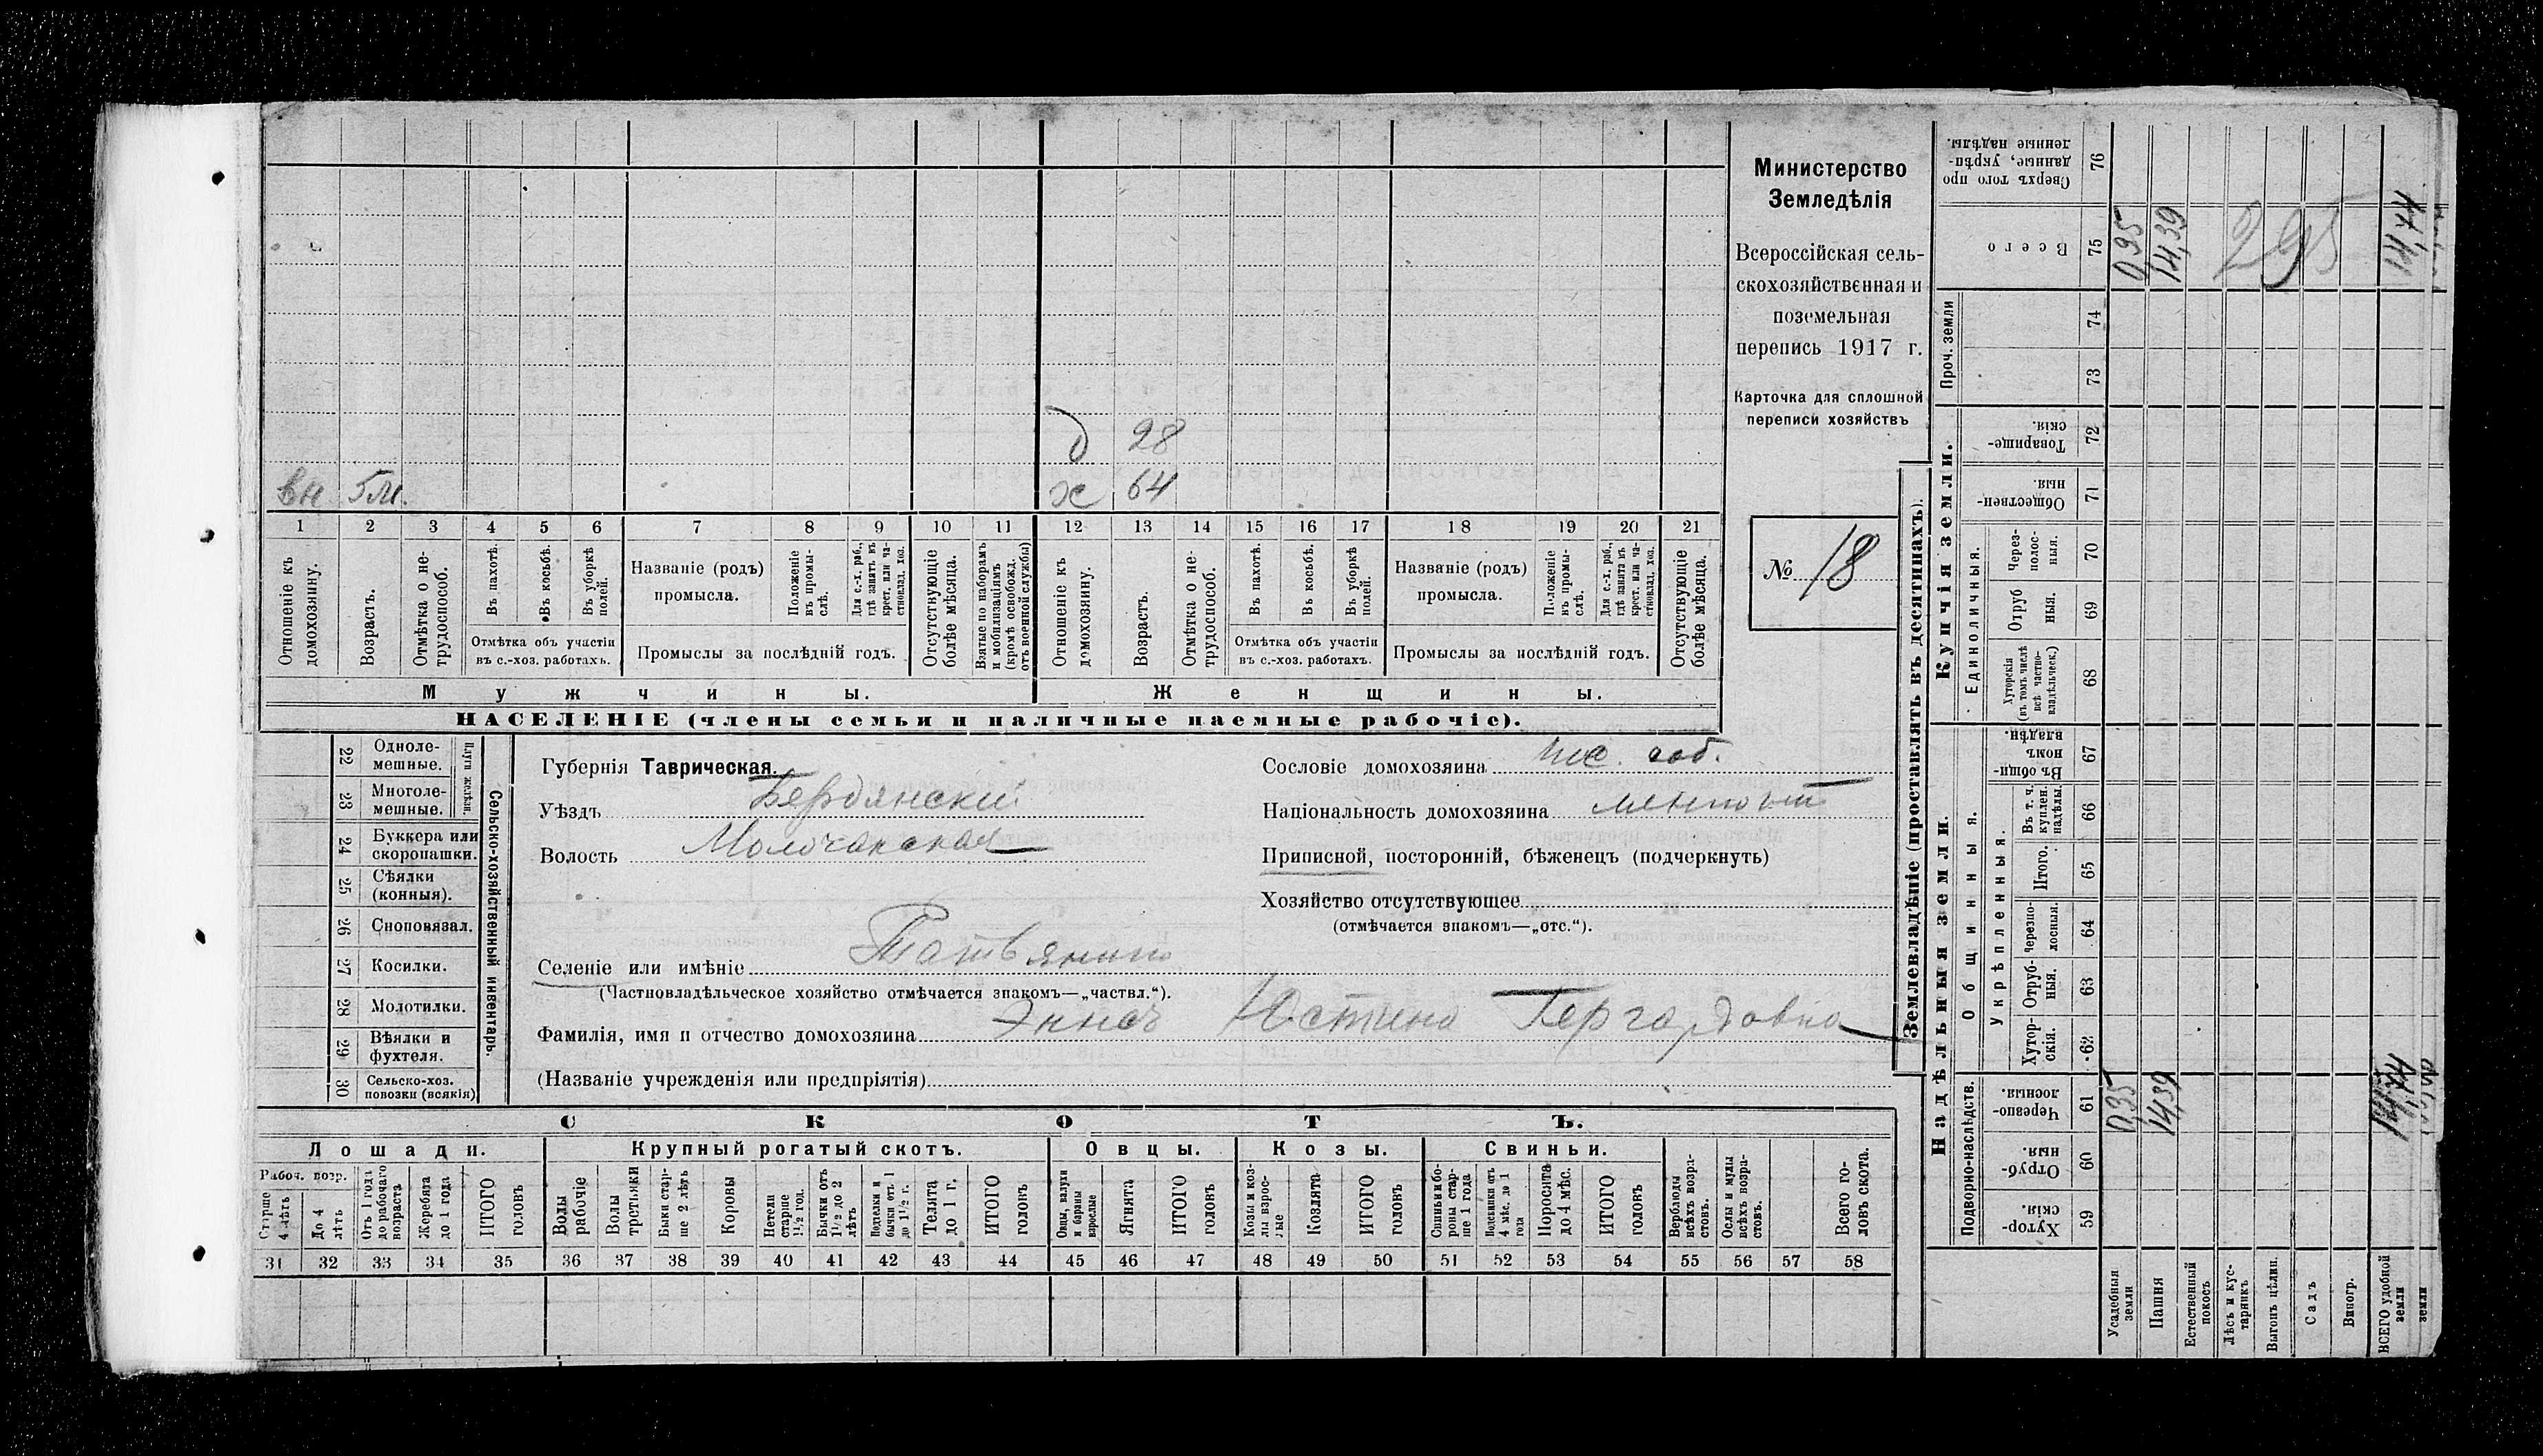 Министерство
Земледѣлія
Всероссійская сель-
скохозяйственная и
поземельная
перепись 1917 г.
Карточка для сплошной
переписи хозяйствъ
№ 18
д 28
вн 5м. ж 64
1 2 3 4 5 6 7 8 9 10 11 12 13 14 15 16 17 18 19 20 21
Отношеніе къ домохозяину.
Возрастъ.
Отмѣтка о не-трудоспособ.
Въ пахотѣ.
Въ косьбѣ.
Въ уборкѣ полей.
Отмѣтка объ участіи
въ с.-хоз. работахъ.
Названіе (родъ)
промысла.
Положеніе въ промы-слѣ.
Для с.-х. раб., гдѣ занятъ въ крест. или ча-стновлад. хоз.
Промыслы за послѣдній годъ.
Отсутствующіе болѣе мѣсяца.
Взятые по наборамъ и мобилизаціямъ (кромѣ освобожд. отъ военной службы)
Отношеніе къ домохозяину.
Возрастъ.
Отмѣтка о не-трудоспособ.
Въ пахотѣ.
Въ косьбѣ.
Въ уборкѣ полей.
Отмѣтка объ участіи
въ с.-хоз. работахъ.
Названіе (родъ)
промысла.
Положеніе въ промы-слѣ.
Для с.-х. раб., гдѣ занята въ крест. или ча-стновлад. хоз.
Промыслы за послѣдній годъ.
Отсутствующіе болѣе мѣсяца.
Мужчины. Женщины.
НАСЕЛЕНІЕ (члены семьи и наличные наемные рабочіе).
Сельско-хозяйственный инвентарь.
22 Одноле-мешные.
23 Многоле-мешные.
24 Буккера или скоропашки.
25 Сѣялки (конныя).
26 Сноповязал.
27 Косилки.
28 Молотилки.
29 Вѣялки и фухтеля.
30 Сельско-хоз. повозки (всякія)
Губернія Таврическая.
Уѣздъ Бердянскій
Волость Молочанская
Селеніе или имѣніе
(Частновладѣльческое хозяйство отмѣчается знакомъ—„частвл.“).
Фамилія, имя и отчество домохозяина Эннсъ Юстина Гергардовна
(Названіе учрежденія или предпріятія)
Сословіе домохозяина пос. соб.
Національность домохозяина
Приписной, посторонній, бѣженецъ (подчеркнуть)
Хозяйство отсутствующее
(отмѣчается знакомъ—„отс.“).
СКОТЪ.
Лошади. Крупный рогатый скотъ. Овцы. Козы. Свиньи.
Рабоч. возр.
Старше 4 лѣтъ
До 4 лѣтъ
Отъ 1 года до рабочаго возраста
Жеребята до 1 года
ИТОГО головъ
Волы рабочіе
Волы третьяки
Быки стар-ше 2 лѣтъ
Коровы
Нетели старше 1½ год.
Бычки отъ 1½ до 2 лѣтъ
Подтелки и бычки отъ 1 до 1½ г.
Телята до 1 г.
ИТОГО головъ
Овцы, валухи и бараны взрослые
Ягнята
ИТОГО головъ
Козы и коз-лы взрос-лые
Козлята
ИТОГО головъ
Свиньи и бо-ровы стар-ше 1 года
Подсвинки отъ 4 мѣс. до 1 года
Поросята до 4 мѣс.
ИТОГО головъ
Верблюды всѣхъ возра-стовъ.
Ослы и мулы всѣхъ возра-стовъ.
Всего го-ловъ скота.
31 32 33 34 35 36 37 38 39 40 41 42 43 44 45 46 47 48 49 50 51 52 53 54 55 56 57 58
Землевладѣніе (проставлять въ десятинахъ).
Надѣльныя земли. Купчія земли. Проч. земли
Подворно-наслѣдств.
Общинныя.
Укрѣпленныя.
Единоличныя.
59 Хутор-скія.
60 Отруб-ныя.
61 Черезпо-лосныя.
62 Хутор-скія.
63 Отруб-ныя.
64 Черезпо-лосныя.
65 Итого.
66 Въ т. ч. куплен. надѣлы.
67 Въ общи-номъ владѣн.
68 Хуторскія (въ томъ числѣ всѣ частно-владѣльческ.)
69 Отруб ныя.
70 Через-полос-ныя.
71 Обществен-ныя.
72 Товарище-скія.
73
74
75 Всего
76 Сверхъ того про данные, укрѣп-ленные надѣлы.
14,39
14,39
295
Усадебныя земли
Пашня
Естественный покосъ
Лѣсъ и кус-тарникъ
Выгонъ цѣлин.
Садъ
Виногр.
ВСЕГО удобной земли
земли